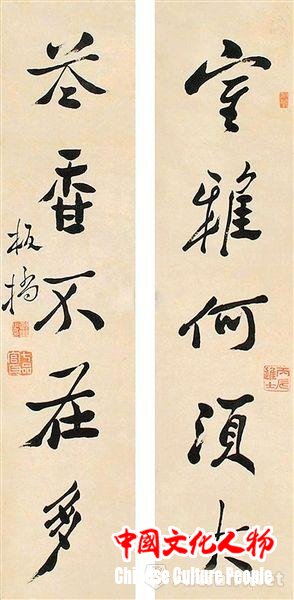 室雅何須大
花香不在多
板橋
七品官耳
丙辰進士
中國文化人物
Chinese Culture People